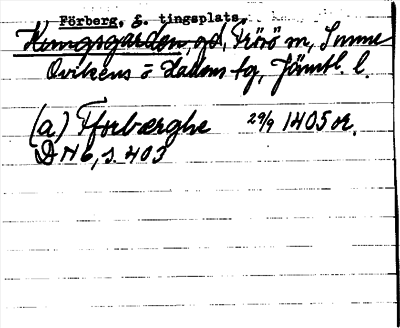 Förberg, f. tingsplats,
Kungsgården, gd, Frösö sn, Sunne
Ovikens o Hallens tg, Jämtl. l.
(a) Fforbærghe 29/9 1405 or.
DN 6, s. 403